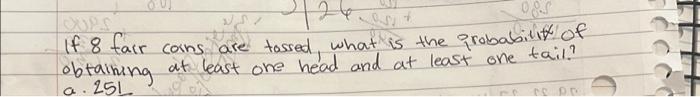 26
If 8 fair coins are tossed, what is the probability of
obtaining at least one head and at least one tail?
a. 251